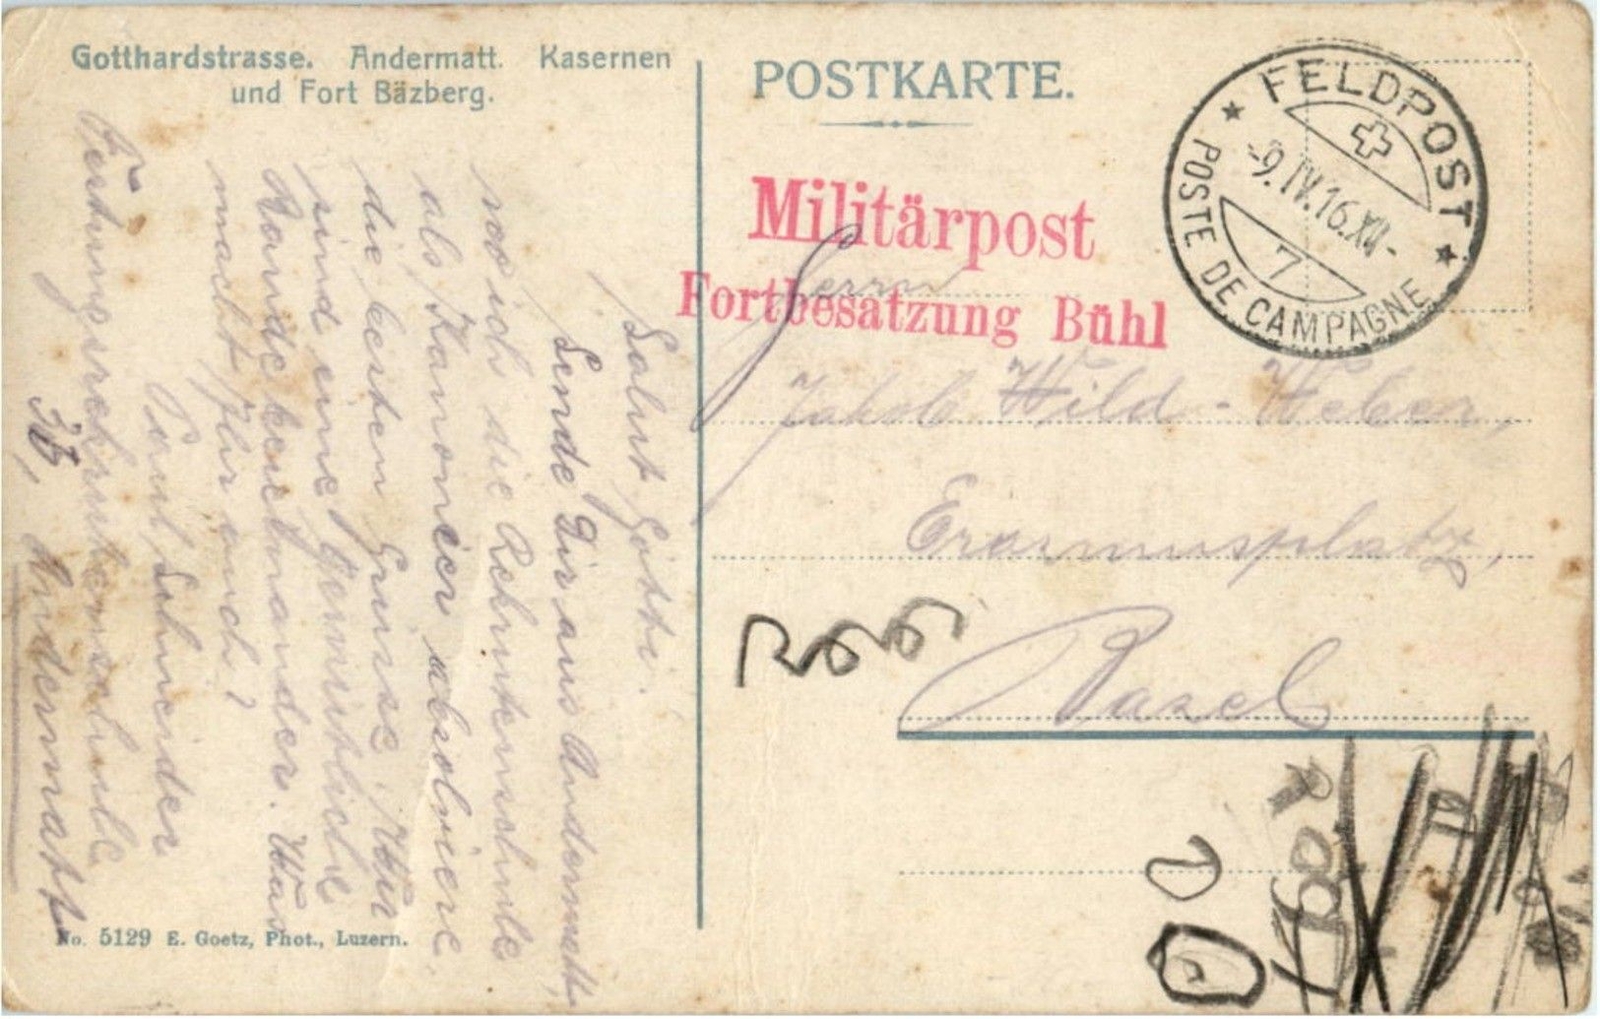 Gotthardstrasse. Andermatt. Kasernen
und Fort Bäzberg.
POSTKARTE.
FELDPOST
-9.IV.16.XII-
7
POSTE DE CAMPAGNE
Militärpost
Fortbesatzung Bühl
Herrn
Jakob Wild-Weber,
Erasmusplatz,
Basel
Salut Götti.
Sende Dir aus Andermatt,
wo ich die Rekrutenschule
als Kanonier absolviere,
die besten Grüsse. Wir
sind eine gemütliche
Bande beieinander. Was
macht Ihr auch?
Paul Schneider
Festungsrekrutenschule
Andermatt
No. 5129 E. Goetz, Phot., Luzern.